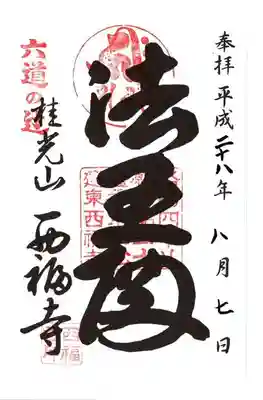 奉拝 平成二十八年 八月七日
法王閣
六道の辻
桂光山 西福寺